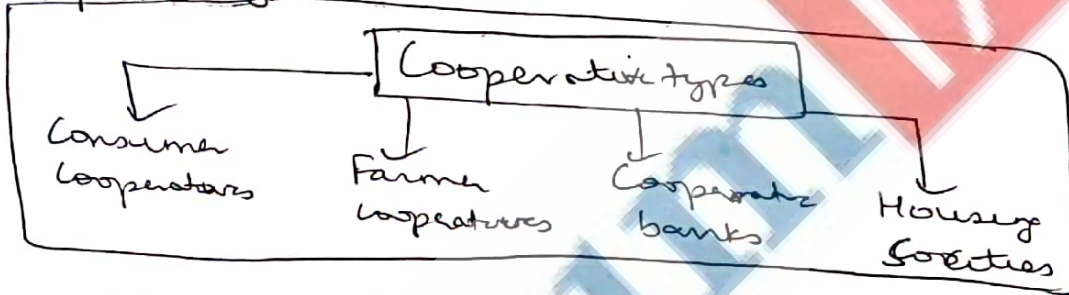 Cooperative types
Consumer
cooperatives
Farmer
cooperatives
Cooperative
banks
Housing
Societies